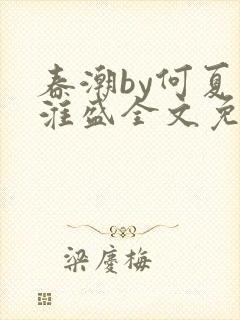 春潮by何夏
淮盛全文免
梁庆梅